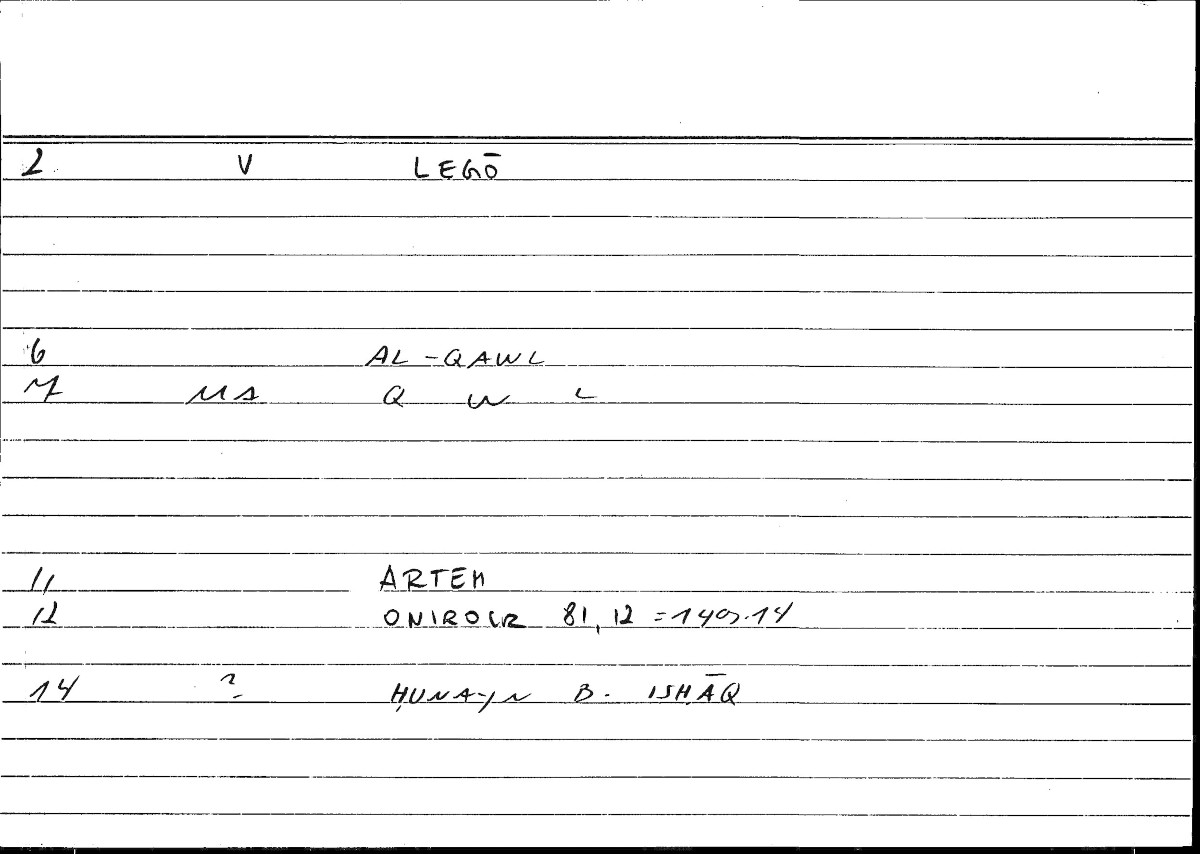 2 V LEGŌ
6 AL-QAWL
7 MS Q W L
11 ARTEM
12 ONIROCR 81,12 =
14 ? ḤUNAYN B. ISḤĀQ